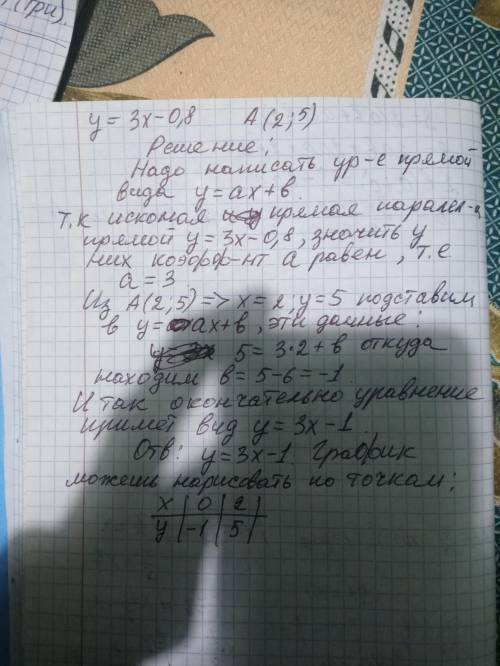 (три).
y = 3x-0,8 A(2;5)
Решение:
Надо написать ур-е прямой
вида y=ax+b.
т.к искомая прямая паралл-а
прямой y=3x-0,8, значить у
них коэфф-нт a равен, т.е
a=3
Из A(2;5) => x=2; y=5 подставим
в y=ax+b, эти данные:
5=3·2+b откуда
находим b=5-6=-1.
И так окончательно уравнение
примет вид y=3x-1.
Отв: y=3x-1 График
можешь нарисовать по точкам:
x | 0 | 2 |
y | -1 | 5 |